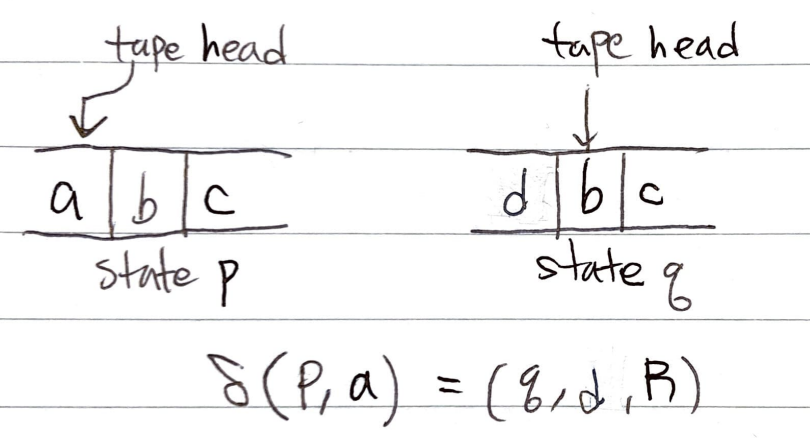 tape head tape head
a b c d b c
state p state q
δ(p, a) = (q, d, R)